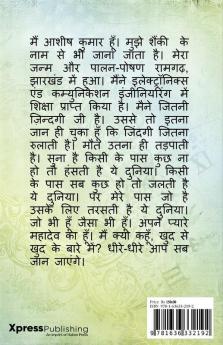 मैं आशीष कुमार हूँ। मुझे शैंकी के
नाम से भी जाना जाता है। मेरा
जन्म और पालन-पोषण रामगढ़,
झारखंड में हुआ। मैंने इलेक्ट्रॉनिक्स
एंड कम्युनिकेशन इंजीनियरिंग में
शिक्षा प्राप्त किया है। मैंने जितनी
ज़िन्दगी जी है। उससे तो इतना
जान ही चुका हूँ कि जिंदगी जितना
रुलाती है। मौत उतना ही तड़पाती
है। सुना है किसी के पास कुछ ना
हो तो हंसती है ये दुनिया। किसी
के पास सब कुछ हो तो जलती है
ये दुनिया। पर मेरे पास जो है
उसके लिए तरसती है ये दुनिया।
जो भी हूँ जैसा भी हूँ। अपने प्यारे
महादेव का हूँ। मैं क्या कहूँ, खुद से
खुद के बारे में? धीरे-धीरे आप सब
जान जाएंगे।
Price: Rs 150.00
ISBN 978-1-63633-219-2
XpressPublishing
An imprint of Notion Press
9 781636 332192